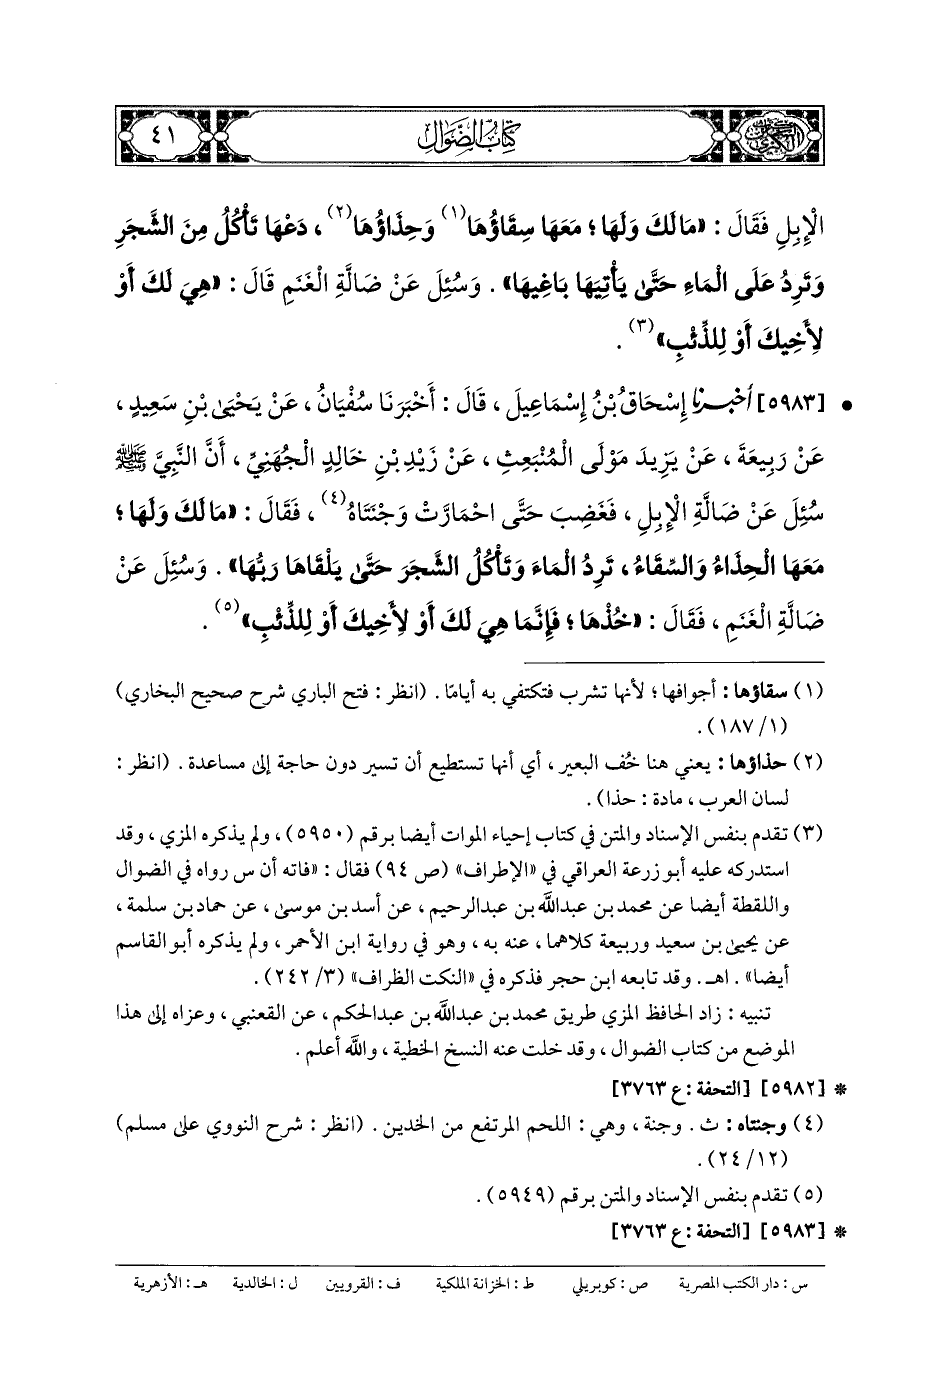 كتاب الضوال
٤١
الْإِبِلِ فَقَالَ : «مَا لَكَ وَلَهَا ؛ مَعَهَا سِقَاؤُهَا(١) وَحِذَاؤُهَا(٢) ، دَعْهَا تَأْكُلُ مِنَ الشَّجَرِ
وَتَرِدُ عَلَى الْمَاءِ حَتَّىٰ يَأْتِيَهَا بَاغِيهَا» . وَسُئِلَ عَنْ ضَالَّةِ الْغَنَمِ قَالَ : «هِيَ لَكَ أَوْ
لِأَخِيكَ أَوْ لِلذِّئْبِ»(٣) .
• [٥٩٨٣] أخبرنا إِسْحَاقُ بْنُ إِسْمَاعِيلَ ، قَالَ : أَخْبَرَنَا سُفْيَانُ ، عَنْ يَحْيَىٰ بْنِ سَعِيدٍ ،
عَنْ رَبِيعَةَ ، عَنْ يَزِيدَ مَوْلَى الْمُنْبَعِثِ ، عَنْ زَيْدِ بْنِ خَالِدٍ الْجُهَنِيِّ ، أَنَّ النَّبِيَّ ﷺ
سُئِلَ عَنْ ضَالَّةِ الْإِبِلِ ، فَغَضِبَ حَتَّى احْمَارَّتْ وَجْنَتَاهُ(٤) ، فَقَالَ : «مَا لَكَ وَلَهَا ؛
مَعَهَا الْحِذَاءُ وَالسِّقَاءُ ، تَرِدُ الْمَاءَ وَتَأْكُلُ الشَّجَرَ حَتَّىٰ يَلْقَاهَا رَبُّهَا» . وَسُئِلَ عَنْ
ضَالَّةِ الْغَنَمِ ، فَقَالَ : «خُذْهَا ؛ فَإِنَّمَا هِيَ لَكَ أَوْ لِأَخِيكَ أَوْ لِلذِّئْبِ»(٥) .
(١) سقاؤها : أجوافها ؛ لأنها تشرب فتكتفي به أيامًا . (انظر : فتح الباري شرح صحيح البخاري)
(١/ ١٨٧) .
(٢) حذاؤها : يعني هنا خُف البعير ، أي أنها تستطيع أن تسير دون حاجة إلى مساعدة . (انظر :
لسان العرب ، مادة : حذا) .
(٣) تقدم بنفس الإسناد والمتن في كتاب إحياء الموات أيضا برقم (٥٩٥٠) ، ولم يذكره المزي ، وقد
استدركه عليه أبو زرعة العراقي في «الإطراف» (ص ٩٤) فقال : «فاته أن س رواه في الضوال
واللقطة أيضا عن محمد بن عبدالله بن عبدالرحيم ، عن أسد بن موسىٰ ، عن حماد بن سلمة ،
عن يحيىٰ بن سعيد وربيعة كلاهما ، عنه به ، وهو في رواية ابن الأحمر ، ولم يذكره أبو القاسم
أيضا» . اهـ . وقد تابعه ابن حجر فذكره في «النكت الظراف» (٣/ ٢٤٢) .
تنبيه : زاد الحافظ المزي طريق محمد بن عبدالله بن عبدالحكم ، عن القعنبي ، وعزاه إلى هذا
الموضع من كتاب الضوال ، وقد خلت عنه النسخ الخطية ، والله أعلم .
* [٥٩٨٢] [التحفة : ع ٣٧٦٣]
(٤) وجنتاه : ث . وجنة ، وهي : اللحم المرتفع من الخدين . (انظر : شرح النووي على مسلم)
(١٢/ ٢٤) .
(٥) تقدم بنفس الإسناد والمتن برقم (٥٩٤٩) .
* [٥٩٨٣] [التحفة : ع ٣٧٦٣]
س : دار الكتب المصرية ص : كوبريلي ط : الخزانة الملكية ف : القرويين ل : الخالدية هـ : الأزهرية